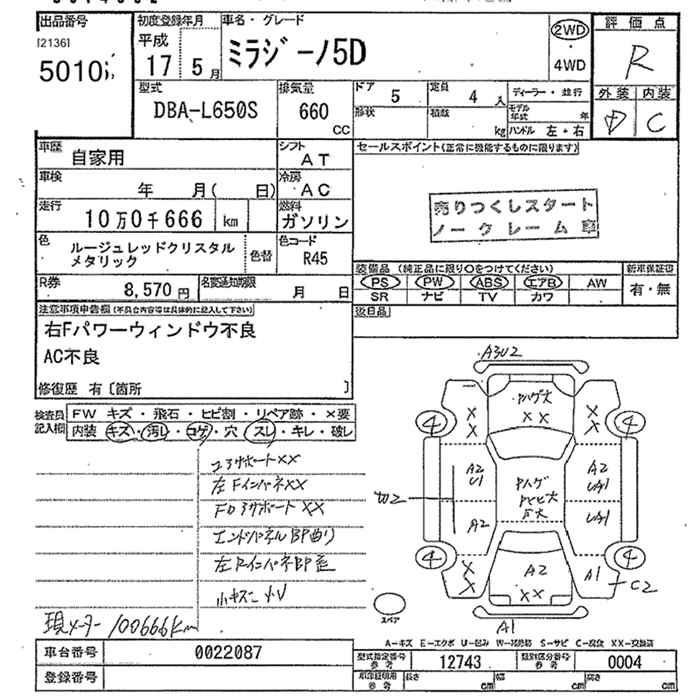 出品番号
初度登録年月
車名・グレード
評価点
[2136]
5010
平成
17 5月
ミラジーノ5D
2WD
・
4WD
R
型式
DBA-L650S
排気量
660
CC
ドア
5
定員
4
人
ディーラー・並行
外装 内装
形状
積載
kg
モデル年式
年
ハンドル 左・右
D C
車歴
自家用
シフト
AT
セールスポイント(正常に機能するものに限ります)
車検
年 月( 日)
冷房
AC
走行
10万0千666 km
燃料
ガソリン
売りつくしスタート
ノークレーム車
色
ルージュレッドクリスタル
メタリック
色替
色コード
R45
装備品 (純正品に限り○をつけてください)
新車保証書
PS PW ABS エアB AW
有・無
SR ナビ TV カワ
R券
8,570円
名変通知期限
月 日
後日品
注意事項申告欄(不具合内容等は具体的に記入して下さい)
右Fパワーウィンドウ不良
AC不良
修復歴 有〔箇所 〕
検査員記入欄
FW キズ・飛石・ヒビ割・リペア跡・×要
内装 キズ・汚レ・コゲ・穴・スレ・キレ・破レ
コアサポートXX
左FインパネXX
エンドパネルBP曲り
現メーター 100666Km
A3U2
XX
XX
XX
XX
XX
4
4
4
4
A2
U1
A2
A2
UA1
UA1
A2
A1
C2
A1
スペア
A-キズ E-エクボ U-凹ミ S-サビ C-腐食 XX-交換済
車台番号
0022087
型式指定番号
参考
12743
類別区分番号
参考
0004
登録番号
長さ
cm
幅
cm
高さ
cm